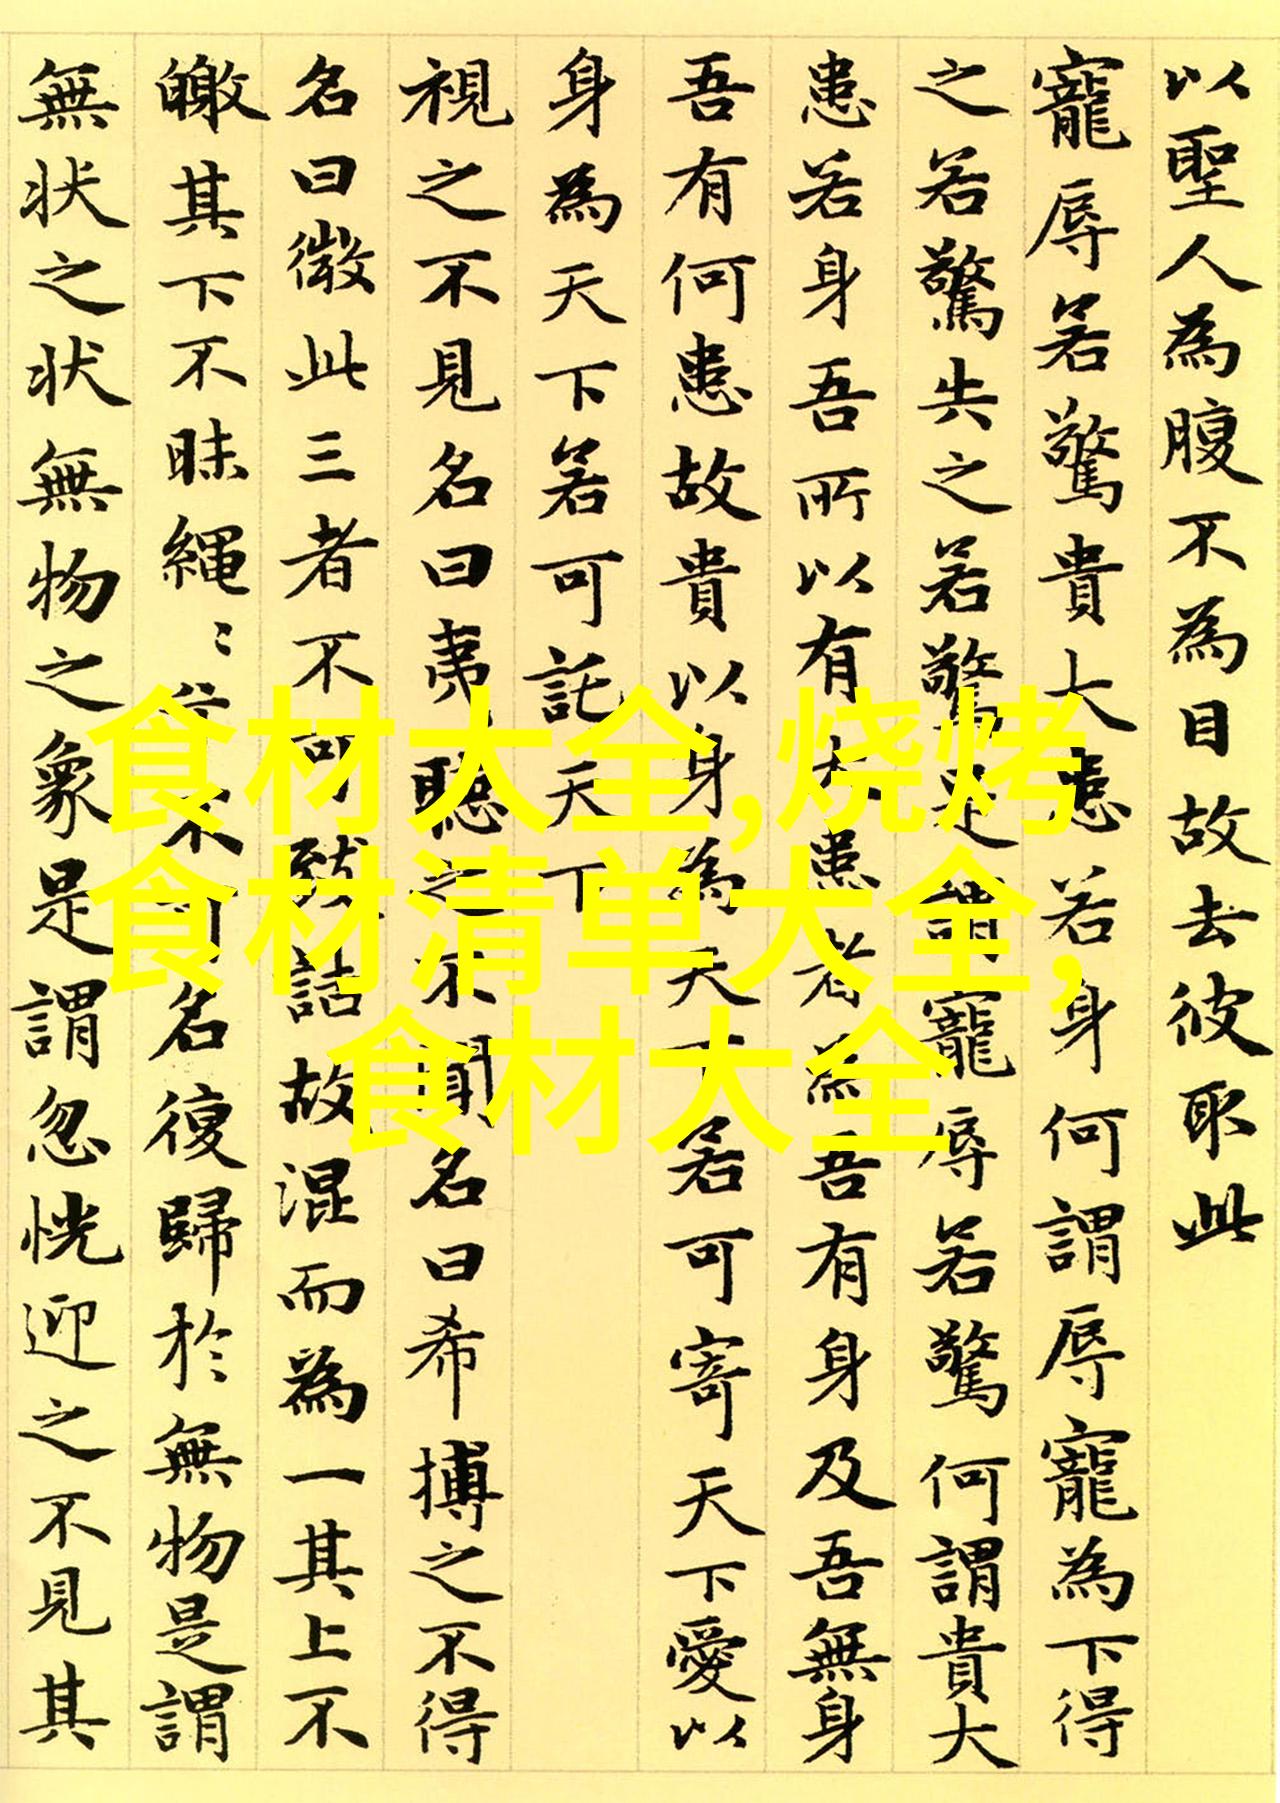 以聖人為腹不為目故去彼取此
寵辱若驚貴大患若身何謂辱寵為下得
之若驚失之若驚是謂寵辱若驚何謂貴大
患若身吾所以有大患者為吾有身及吾無身
吾有何患故貴以身為天下若可寄天下愛以
身為天下若可託天下
視之不見名曰夷聽之不聞名曰希搏之不得
名曰微此三者不可致詰故混而為一其上不
皦其下不昧繩〻兮不可名復歸於無物是謂
無状之状無物之象是謂忽恍迎之不見其
食材大全,烧烤
食材清单大全,
食材大全